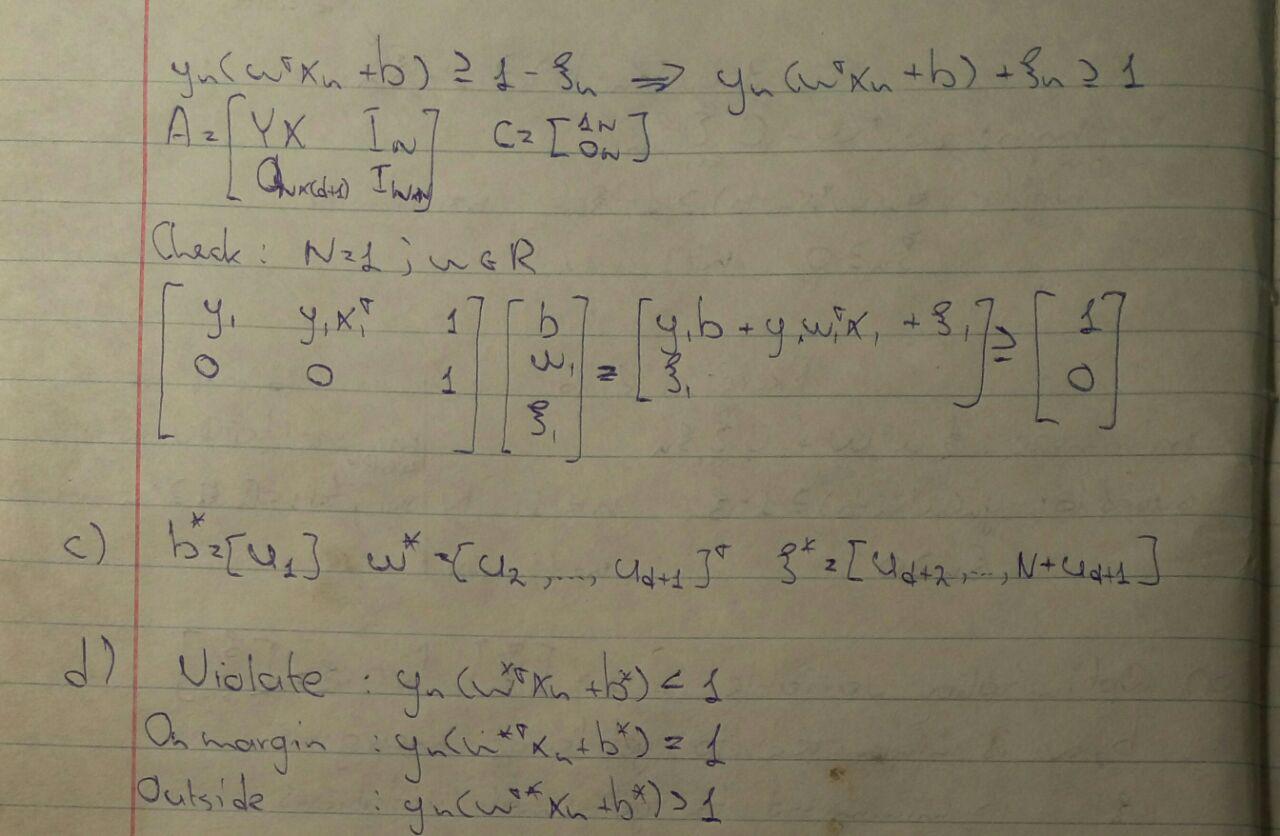 yₙ(wᵀxₙ + b) ≥ 1 - ξₙ ⇒ yₙ(wᵀxₙ + b) + ξₙ ≥ 1
A = [ YX I_N ; 0_{N×(d+1)} I_{N×N} ] C = [ 1_N ; 0_N ]
Check : N=1 ; w ∈ R
[ y₁ y₁x₁ᵀ 1 ; 0 0 1 ] [ b ; w₁ ; ξ₁ ] = [ y₁b + y₁w₁ᵀx₁ + ξ₁ ; ξ₁ ] ≥ [ 1 ; 0 ]
c) b* = [u₁] w* = [u₂ ,..., u_{d+1}]ᵀ ξ* = [u_{d+2} ,..., N+u_{d+1}]
d) Violate : yₙ(w*ᵀxₙ + b*) < 1
On margin : yₙ(w*ᵀxₙ + b*) = 1
Outside : yₙ(wᵀ*xₙ + b*) > 1